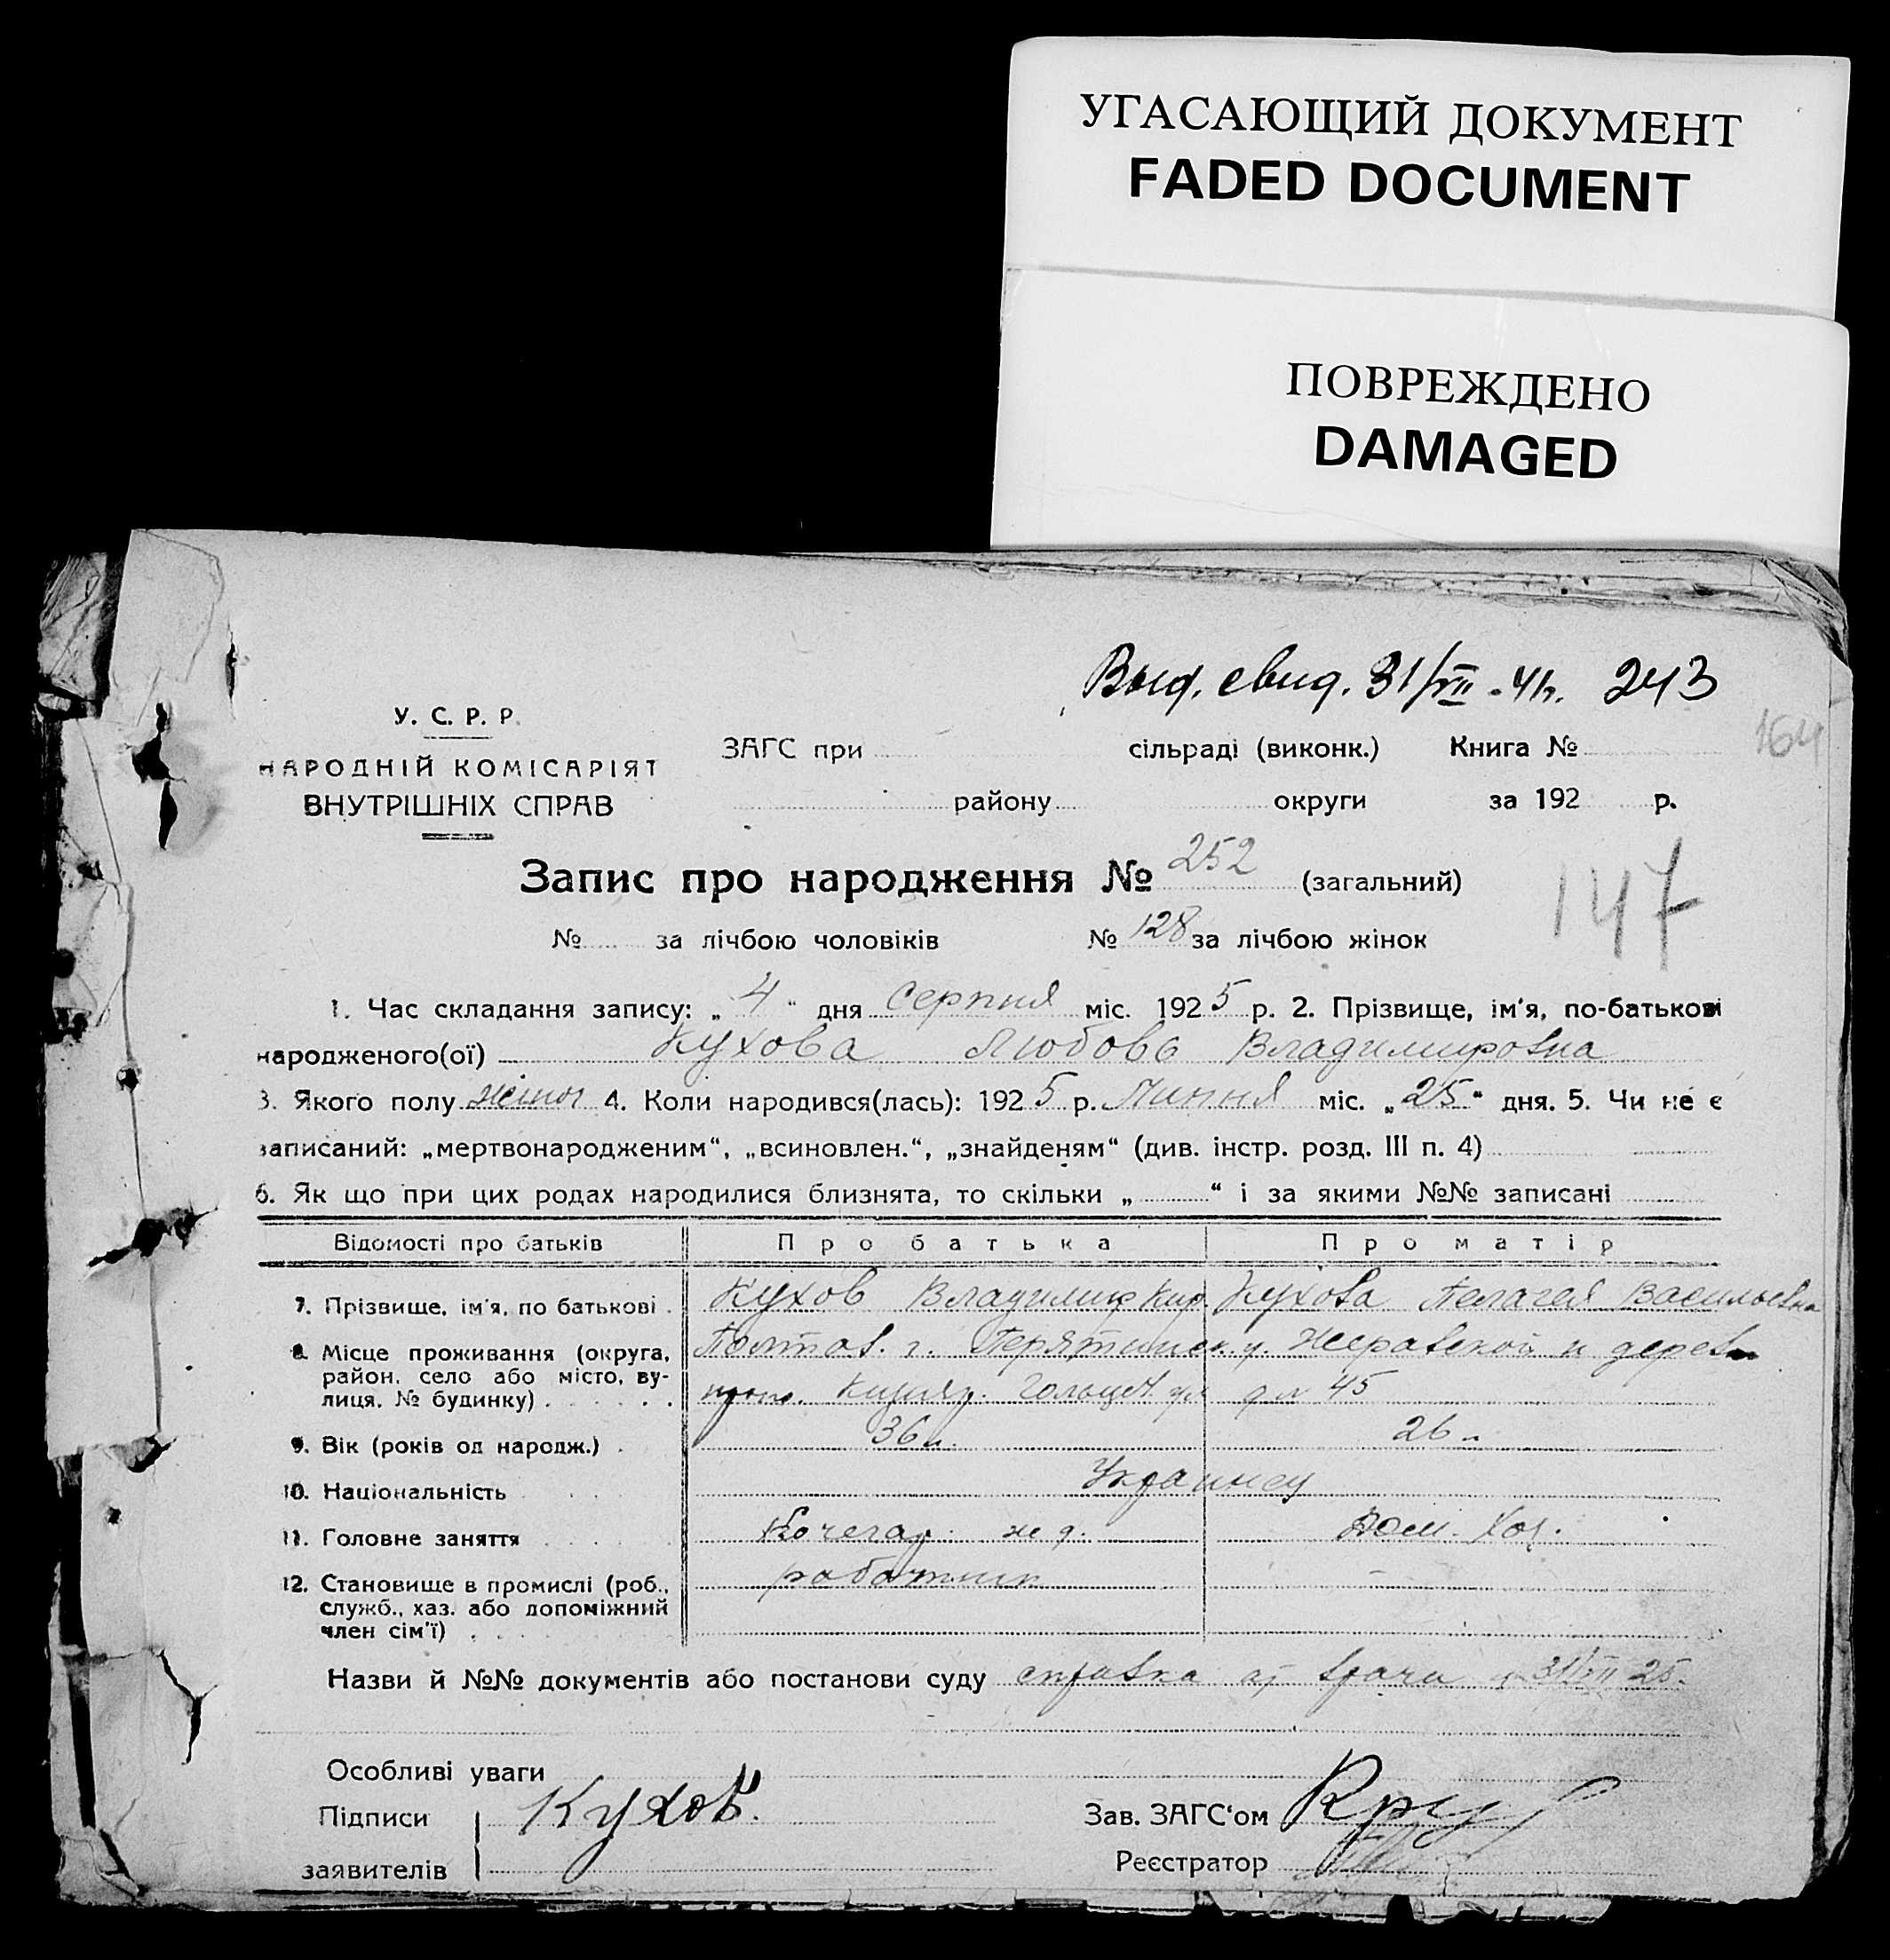 УГАСАЮЩИЙ ДОКУМЕНТ
FADED DOCUMENT
ПОВРЕЖДЕНО
DAMAGED
Выд. свид. 31/VII - 41г. 243
164
У. С. Р. Р.
НАРОДНІЙ КОМІСАРІЯТ
ВНУТРІШНІХ СПРАВ
ЗАГС при сільраді (виконк.) Книга №
району округи за 192 р.
Запис про народження № 252 (загальний)
147
№ за лічбою чоловіків № 128 за лічбою жінок
1. Час складання запису: „ 4 " дня Серпня міс. 1925 р. 2. Прізвище, ім'я, по-батькові
народженого(ої) Кухова Любовь Владимировна
3. Якого полу жіноч 4. Коли народився(лась): 1925 р. Липня міс. „25" дня. 5. Чи не є
записаний: „мертвонародженим", „всиновлен.", „знайденям" (див. інстр. розд. III п. 4)
6. Як що при цих родах народилися близнята, то скільки „ " і за якими №№ записані
Відомості про батьків Про батька Про матір
7. Прізвище, ім'я, по батькові . Кухов Владимир Кир. Кухова Пелагея Васильевна
8. Місце проживання (округа, Полтав. г. у. деревн
район, село або місто, ву-
лиця, № будинку) . . . . . . 45
9. Вік (років од народж.) . 36 л. 26 л
10. Національність Украинцы
11. Головне заняття Кочегар. ж д. Дом. Хоз.
12. Становище в промислі (роб., работник -
служб., хаз. або допоміжний
член сім'ї) . . .
Назви й №№ документів або постанови суду справка от врача 31/VII 25.
Особливі уваги
Підписи Кухов. Зав. ЗАГС'ом
заявителів Реєстратор